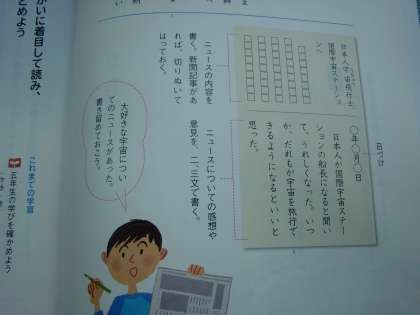 日づけ
〇年〇月〇日
日本人が国際宇宙ステー
ションの船長になると聞い
て、うれしくなった。いつ
か、だれもが宇宙を旅行で
きるようになるといいと
思った。
日本人宇宙飛行士、
国際宇宙ステーション
へ
ニュースについての感想や
意見を、二、三文で書く。
ニュースの内容を
書く。新聞記事があ
れば、切りぬいて
はっておく。
大好きな宇宙につい
てのニュースがあった。
書き留めておこう。
がいに着目して読み、
とめよう
これまでの学習
五年生の学びを確かめよう